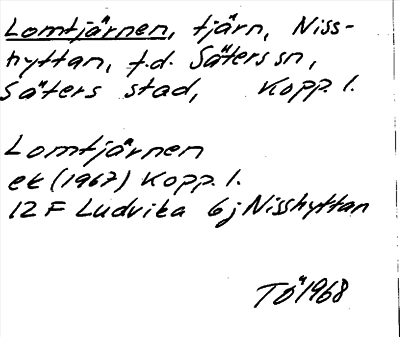 Lomtjärnen, tjärn, Niss-
hyttan, f.d. Säters sn,
Säters stad, Kopp. l.
Lomtjärnen
ek (1967) Kopp. l.
12 F Ludvika 6j Nisshyttan
TÖ 1968